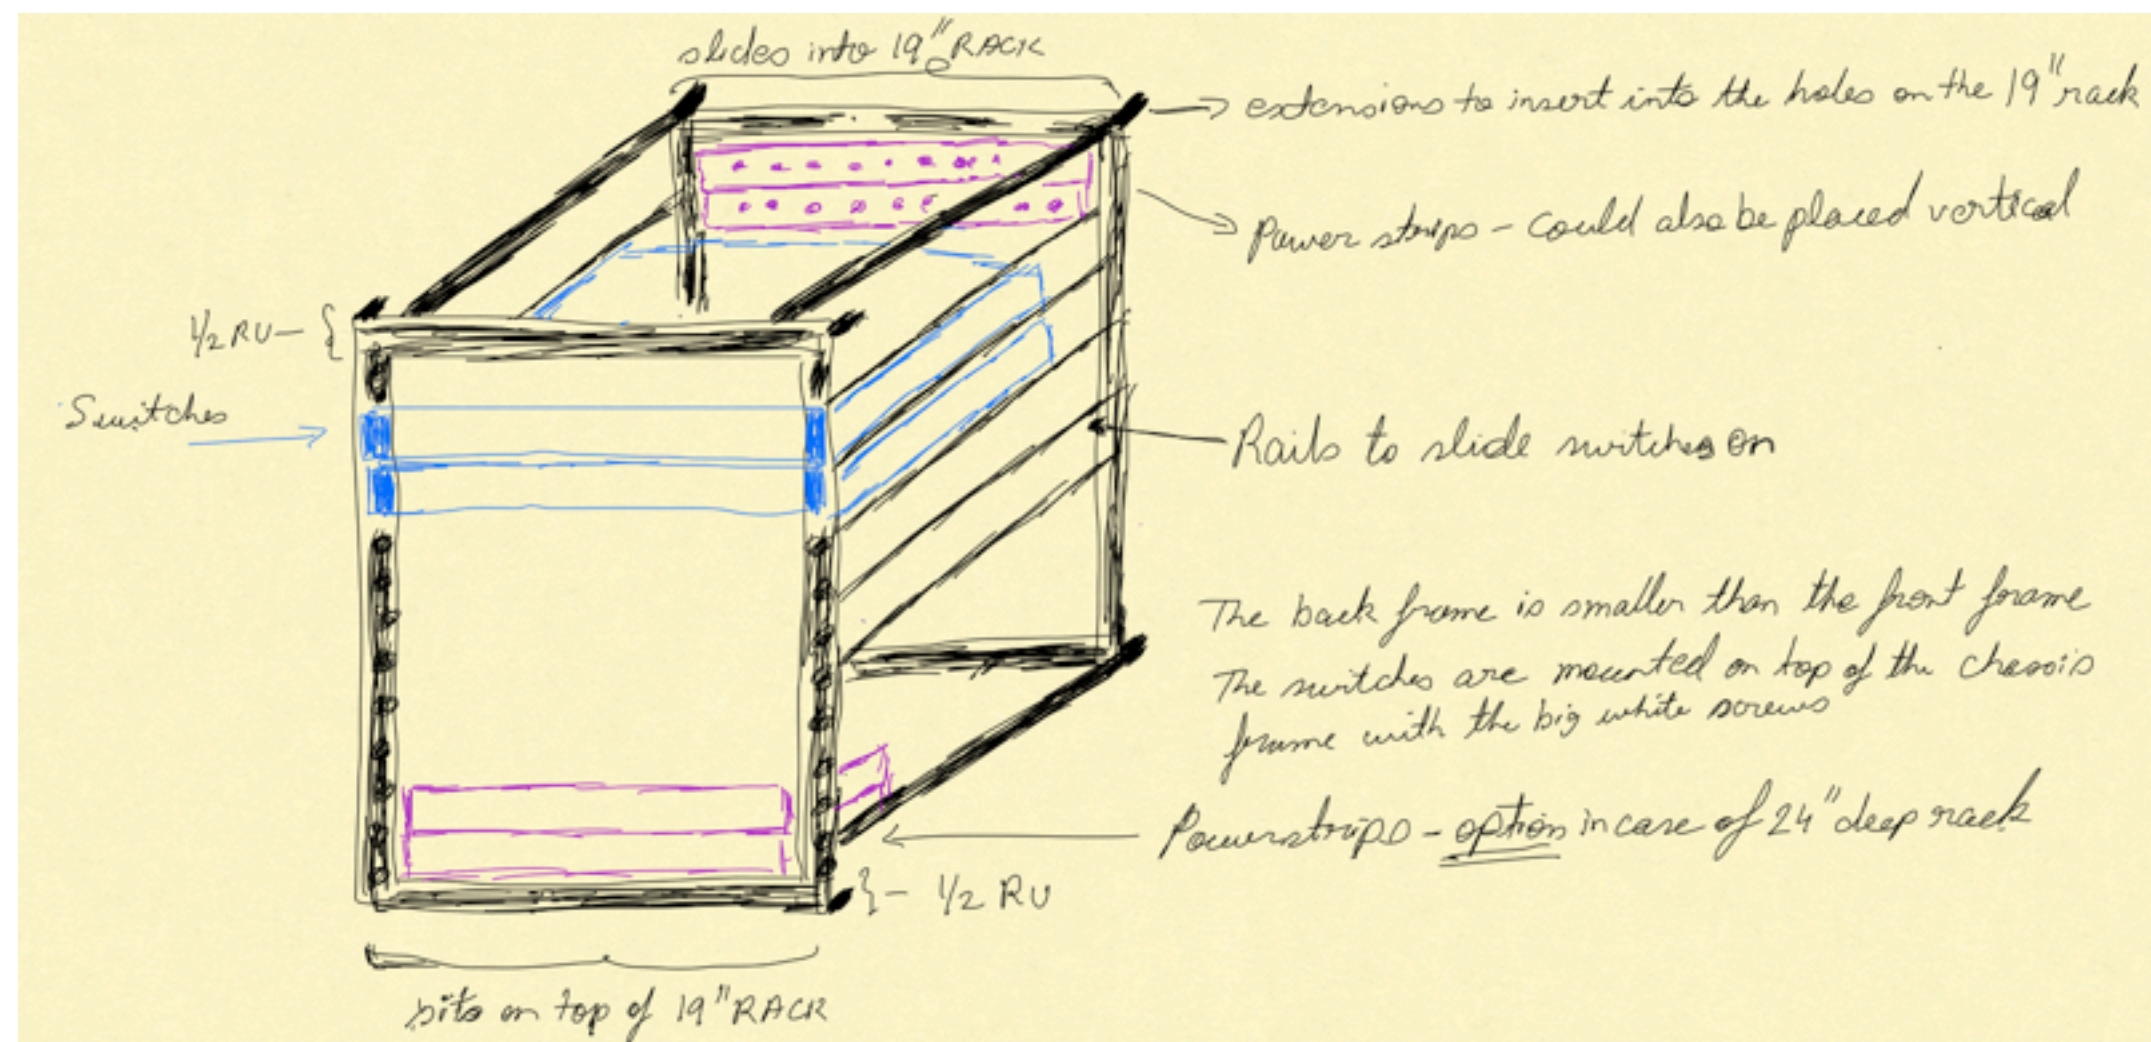 slides into 19" RACK
→ extensions to insert into the holes on the 19" rack
Power strips - could also be placed vertical
1/2 RU -
Switches
Rails to slide switches on
The back frame is smaller than the front frame
The switches are mounted on top of the chassis
frame with the big white screws
Powerstrips - option in case of 24" deep rack
- 1/2 RU
sits on top of 19" RACK